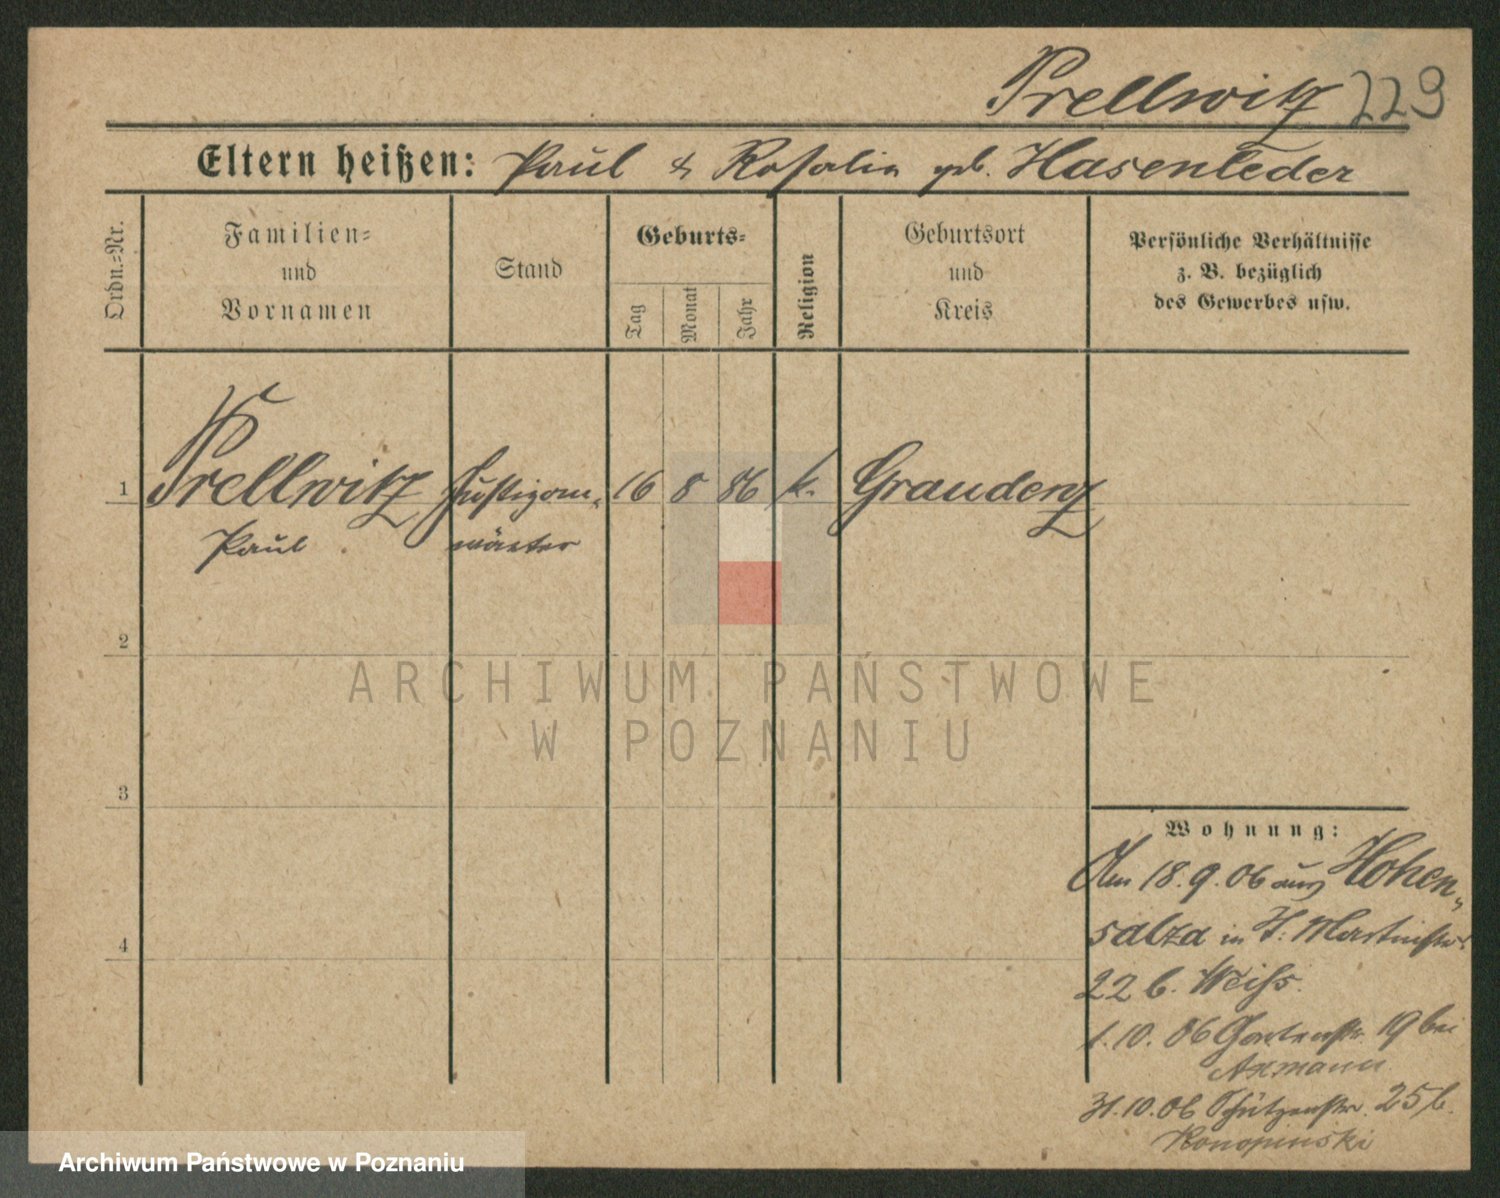 Prellwitz 229
Eltern heißen: Paul & Rosalia geb. Hasenleder
Ordn.-Nr.
Familien-
und
Vornamen
Stand
Geburts-
Tag
Monat
Jahr
Religion
Geburtsort
und
Kreis
Persönliche Verhältnisse
z. B. bezüglich
des Gewerbes usw.
1 Prellwitz Justizan- 16 8 86 k. Graudenz
Paul wärter
2
ARCHIWUM PAŃSTWOWE
W POZNANIU
3
Wohnung:
Am 18.9.06 aus Hohen-
salza in H: Martinstr.
22 b. Weiss.
1.10.06 Gartenstr. 19 bei
Axmann
31.10.06 Schützenstr. 25 b.
Konopinski
4
Archiwum Państwowe w Poznaniu